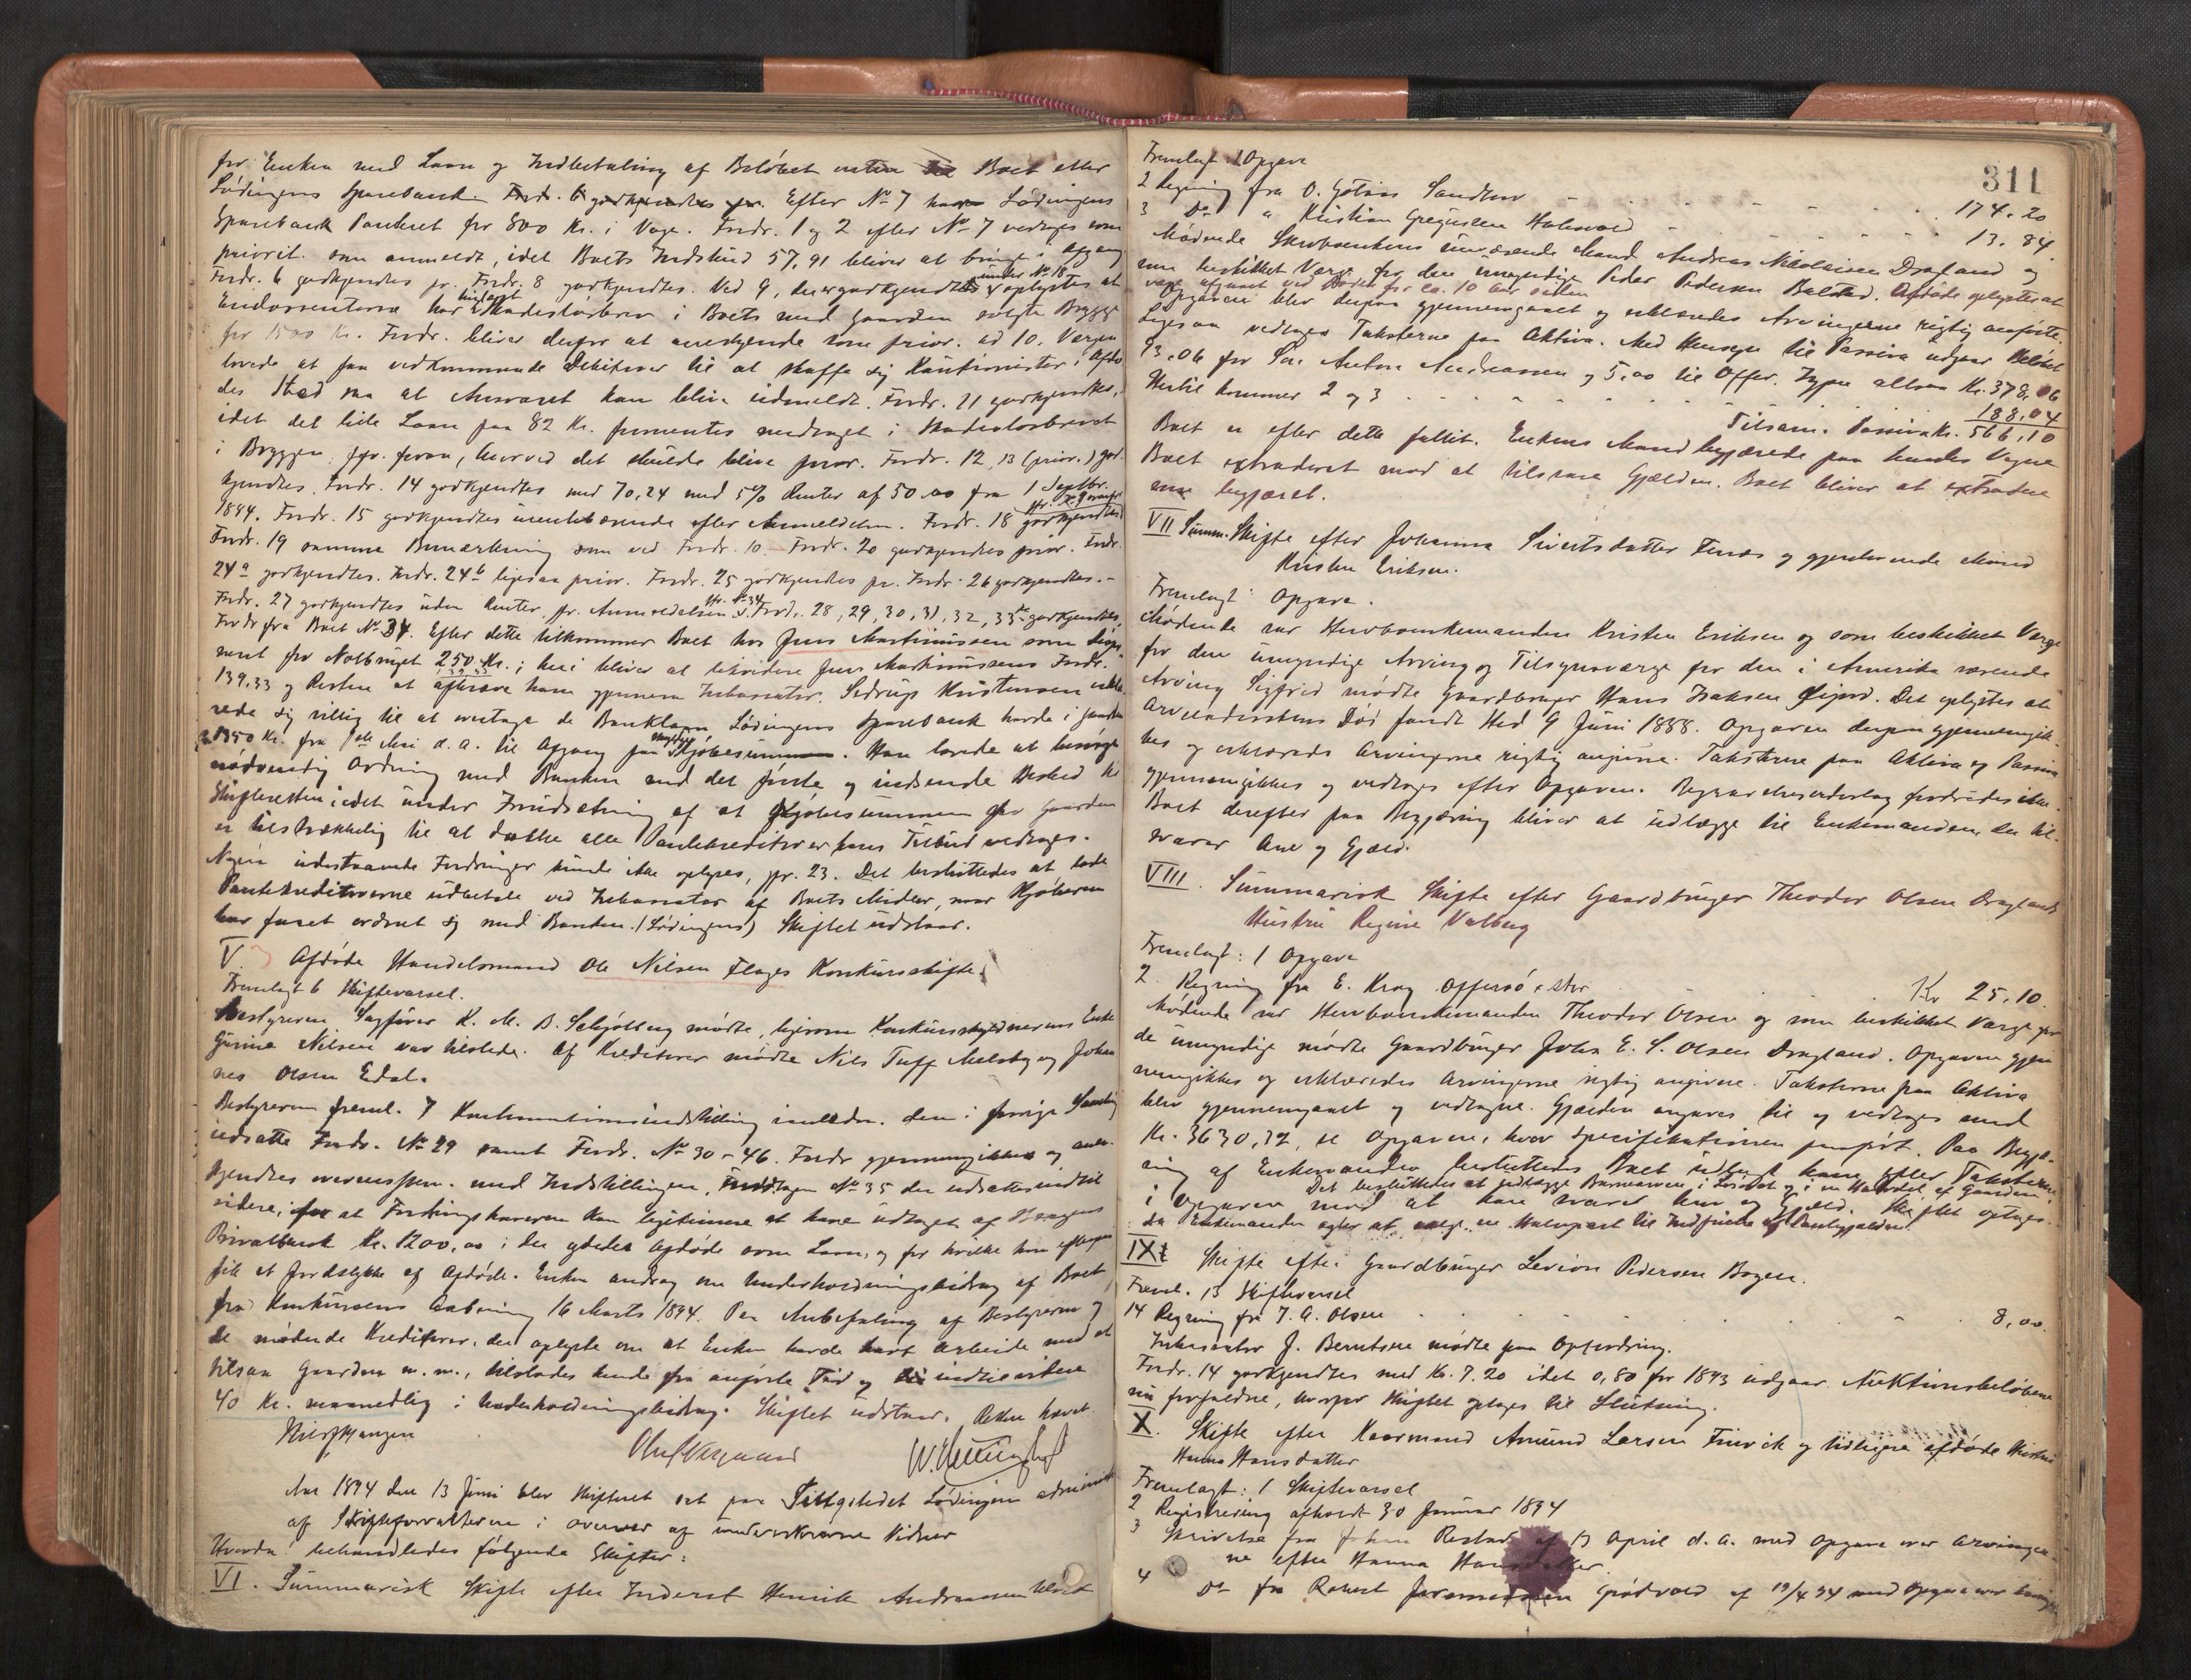 for Enken med Laan og Indbetaling af Beløbet enten Boet eller
Lødingens Sparebank. Fordr. 6 godkjendtes pr. Efter No 7 Lødingens
Sparebank Panteret for 800 Kr. i Vaage. Fordr. 1 og 2 efter No 7 vedtages som
priorit. som anmeldt, idet Boets Indskud 57,91 bliver at bringe i Afgang
Fordr. 6 godkjendtes pr. Fordr. 8 godkjendtes. Ved 9, der godkjendtes, oplystes at
under No 18
har Skadesløsbrev i Boets med Gaarden solgte Brygge
for 1500 Kr. Fordr. bliver derfor at anerkjende som prior. ad 10. Vergen
lovede at faa vedkommende Debitorer til at skaffe sig Kautionister i Afdø
des Sted saa at Ansvaret kan blive udmeldt. Fordr. 11 godkjendtes,
idet det lille Laan paa 82 Kr. formentes medtaget i Skadesløsbrevet
i Bryggen jfr. foran, hvorved det skulde blive prior. Fordr. 12, 13 (prior.) god-
kjendtes. Fordr. 14 godkjendtes med 70,24 med 5% Renter af 50.00 fra 1 Septbr.
1894. Fordr. 15 godkjendtes efter Anmeldelsen. Fordr. 18 godkjendtes
Fordr. 19 samme Bemærkning som ved Fordr. 10. Fordr. 20 godkjendtes prior. Fordr.
24a godkjendtes. Fordr. 24b ligesaa prior. Fordr. 25 godkjendtes pr. Fordr. 26 godkjendtes.
Fordr. 27 godkjendtes uden Renter, pr. Anmeldelsen. Fordr. 28, 29, 30, 31, 32, 33 godkjendtes,
Fordr fra Boet No 34. Efter dette tilkommer Boet hos Jens Martinussen som
ment for Notbruget 250 Kr.; heri bliver at likvidere Jens Martinussens Fordr.
139,33 og Resten at afkræve ham gjennem Inkassator. Sedrup Kristensen erklæ-
rede sig villig til at overtage de Banklaan Lødingens Sparebank havde i Gaarden
1350 Kr. fra 1ste Mai d. a. til Afgang paa Kjøbesummen. Han lovede at besørge
nødvendig Ordning med Banken med det første og indsende Besked til
Skifteretten; idet under Forudsætning af at Kjøbesummen for Gaarden
er tilstrækkelig til at dække alle Pantekreditorer hans Tilbud vedtages.
udestaaende Fordringer kunde ikke oplyses, jfr. 23. Det besluttedes at lade
Pantekreditorerne udbetale ved Inkassator af Boets Midler, naar Kjøberen
har faaet ordnet sig med Banken (Lødingens) Skiftet udstaar.
V. Afdøde Handelsmand Ole Nilsen Flages Konkursskifte.
Fremlagt 6 Skiftevarsel.
Bestyreren Sagfører K. M. B. Schjølberg mødte, ligesom Konkursskyldnerens Enke
Gurine Nilsen var tilstede. Af Kreditorer mødte Nils Tuff Melsby og Johan
nes Olsen Edal.
Bestyreren freml. 7 indstilling den i forrige Samling
udsatte Fordr. No 29 samt Fordr. No 30-46. Fordr gjennemgikkes og aner-
kjendtes overensstem. med Indstillingen, No 35 der udsattes indtil
videre, for at Fordringshaveren kan legitimere at have udtaget af Bergens
Privatbank Kr. 1200,00 i der ydedes Afdøde som Laan, og for hvilke han
fik et Jordstykke af Afdøde. Enken androg om Underholdningsbidrag af Boet,
fra Konkursens Aabning 16 Marts 1894. Paa Anbefaling af Bestyreren og
de mødende Kreditorer, der oplyste om at Enken havde havt Arbeide med at
tilsaa Gaarden m. m., tilstodes hende fra anførte Tid og indtil videre
40 Kr. maanedlig i Underholdningsbidrag. Skiftet udstaar. Retten hævet.
Aar 1894 den 13 Juni blev Skifteret sat paa Lødingen administr.
af Skifteforvalteren i Overvær af underskrevne Vidner
Hvorda behandledes følgende Skifter:
VI. Summarisk Skifte efter Inderst Henrik Andreassen
311
Fremlagt: 1 Opgave
2 Regning fra O. Sandtorv 174.20
3 Do " Kristian Gregusen 13.84
Mødende Skrubenkens nuværende Mand Andreas Nikolaisen Dragland og
som beskikket Værge for den umyndige Peder Pedersen Balstad. Afdøde oplystes at
være afgaaet ved Døden for ca. 10 Aar siden
Opgaven blev derpaa gjennemgaaet og erklæredes Arvingerne rigtig anførte.
Ligesaa vedtages Taksterne paa Aktiva. Med Hensyn til Passiva udgaar Beløbet
93,06 for Sør. Anton Andreassen og 5,00 til Offer. altsaa Kr. 378,06
Hertil kommer 2 og 3 188,04
Tilsam. Passiva Kr. 566,10
Boet er efter dette fallit. Enkens Mand begjærede paa hendes Vegne
Boet extraderet mod at tilsvare Gjælden. Boet bliver at extradere
som begjæret.
VII Summ. Skifte efter Johanna Sivertsdatter Fenes og gjenlevende Mand
Kristen Eriksen.
Fremlagt: Opgave.
Mødende var Skrubenkemanden Kristen Eriksen og som beskikket Værge
for den umyndige Arving og Tilsynsværge for den i Amerika værende
Arving Sigfrid mødte Gaardbruger Hans Isaksen Øijord. Det oplystes at
Arveladerskens Død fandt Sted 9 Juni 1888. Opgaven derpaa gjennemgik-
kes og erklæredes Arvingerne rigtig angivne. Taksterne paa Aktiva og Passiva
gjennemgikkes og vedtages efter Opgaven. fordredes ikke.
Boet derefter paa Begjæring bliver at udlægge til Enkemanden, der til-
svarer Arv og Gjæld.
VIII. Summarisk Skifte efter Gaardbruger Theodor Olsen Draglands
Hustru Regine Valberg
Fremlagt: 1 Opgave
2 Regning fra E. Krog Offersø, stor Kr 25,10
Mødende var Skrubenkemanden Theodor Olsen og som beskikket Værge for
de umyndige mødte Gaardbruger Johs E. S. Olsen Dragland. Opgaven gjen
nemgikkes og erklæredes Arvingerne rigtig angivne. Taksterne paa Aktiva
blev gjennemgaaet og vedtagne. Gjælden opgaves til og vedtages med
Kr. 3630,32, se Opgaven, hvor Specifikationen paaført. Paa Begjæ-
ring af Enkemanden besluttedes Boet udlagt ham efter Taksterne
i Opgaven mod at han svarer Arv og Gjæld. Skiftet optages.
Det besluttedes at udlægge Barnearven i Løsøret og i en Halvdel af Gaarden
da Enkemanden agter at sælge en Halvpart til Indfrielse af Pantegjælden.
IX. Skifte efter Gaardbruger Levion Pedersen Bogen.
Freml. 13 Skiftevarsel
14 Regning fra J. A. Olsen 8,00.
Inkassator J. Berntsen mødte paa Opfordring.
Fordr. 14 godkjendtes med Kr. 7.20 idet 0,80 for 1893 udgaar. Auktionsbeløbene
nu forfaldne, hvorfor Skiftet optages til Slutning.
X. Skifte efter Kaarmand Amund Larsen Finvik og tidligere afdøde Hustru
Hanna Hansdatter
Fremlagt: 1 Skiftevarsel
2 Registrering afholdt 30 Januar 1894
3 Skrivelse fra Johan Restad af 13 April d. a. med Opgave over Arvinger-
ne efter Hanna Hansdatter.
4 Do fra Robert af 19/4 94 med Opgave over